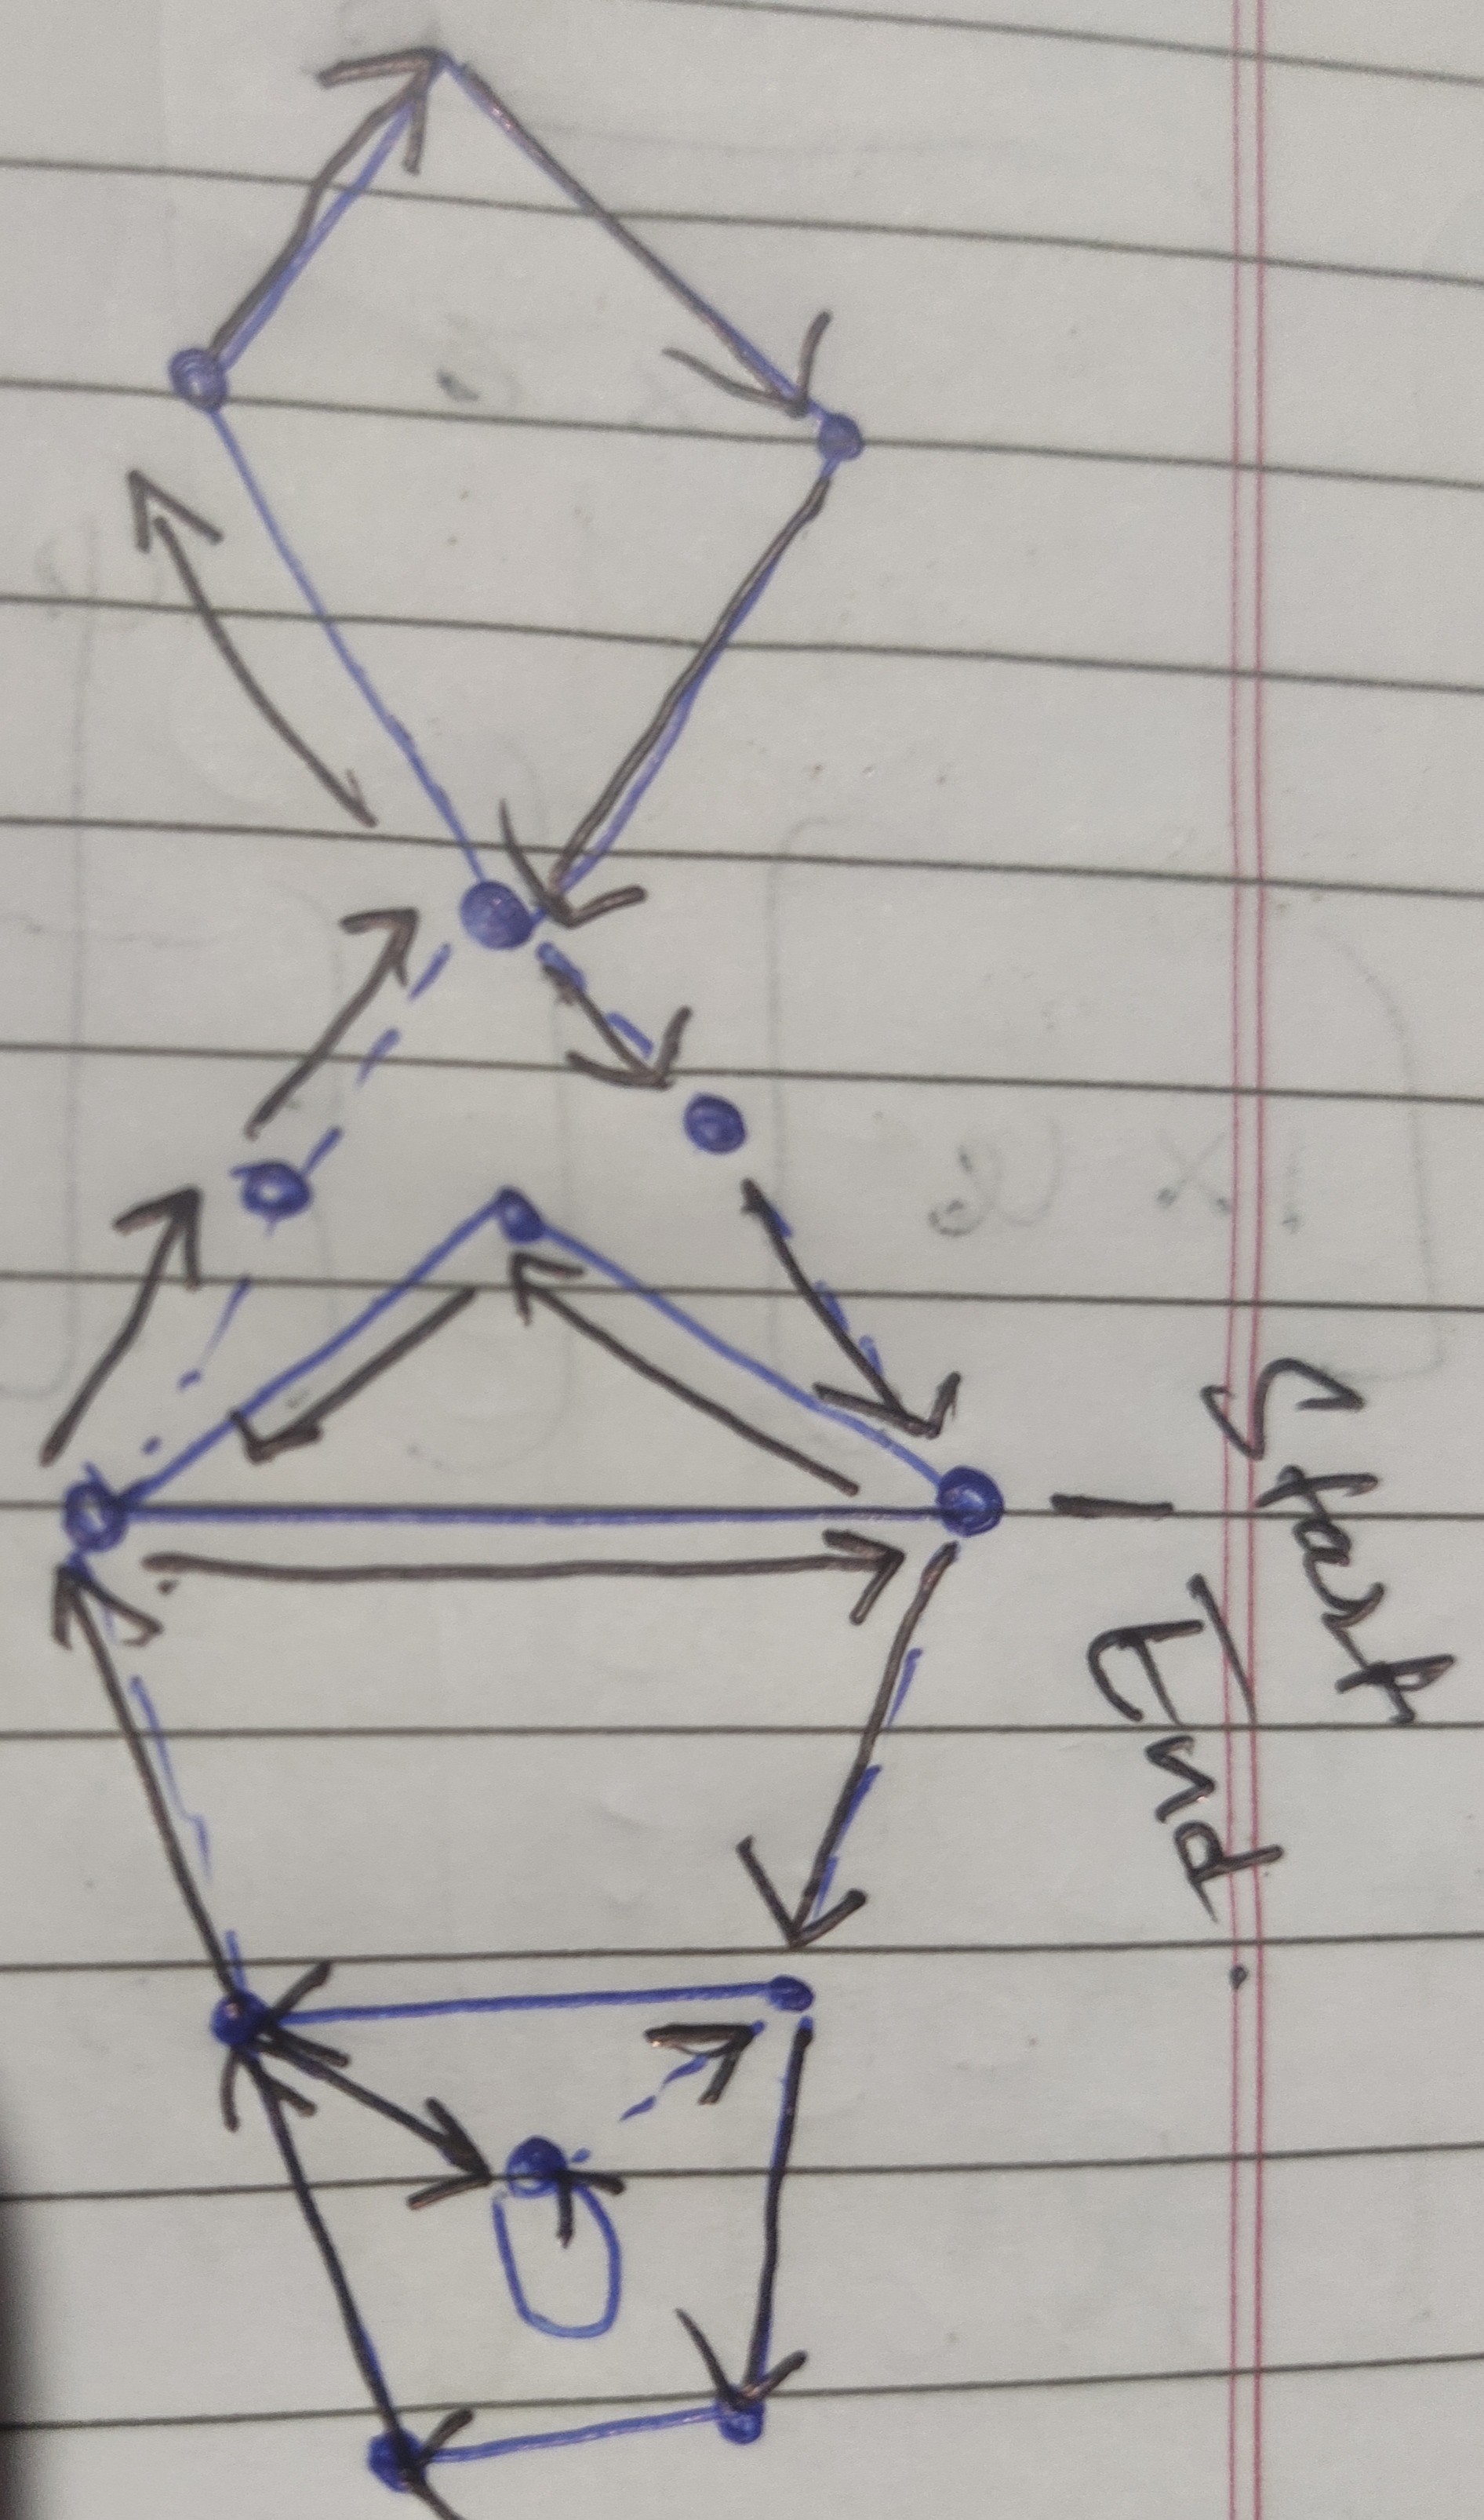 Start/
End.